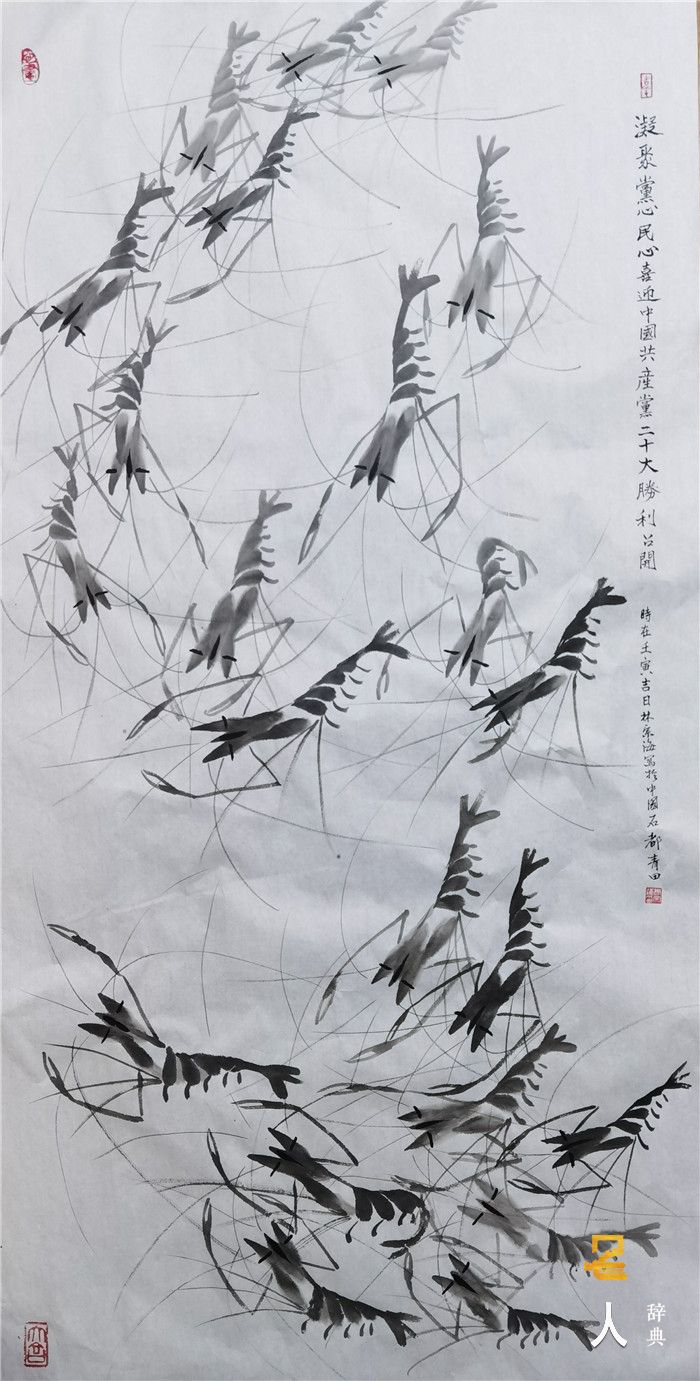 凝聚黨心民心喜迎中國共産黨二十大勝利召開
時在壬寅吉日林宗海寫於中國石都青田
名人
辞典